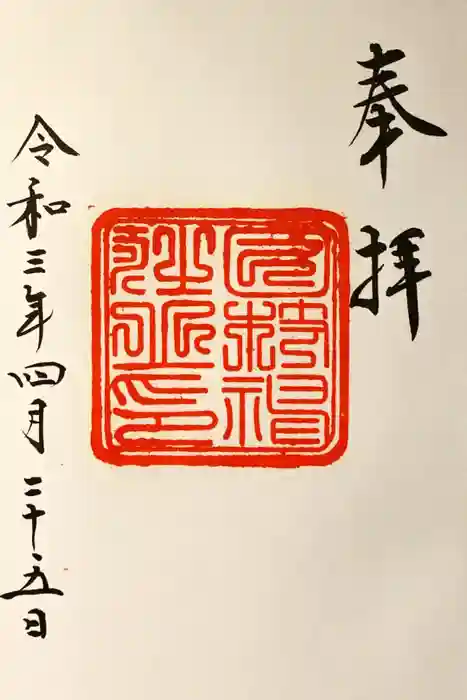 奉拝
令和三年四月二十五日